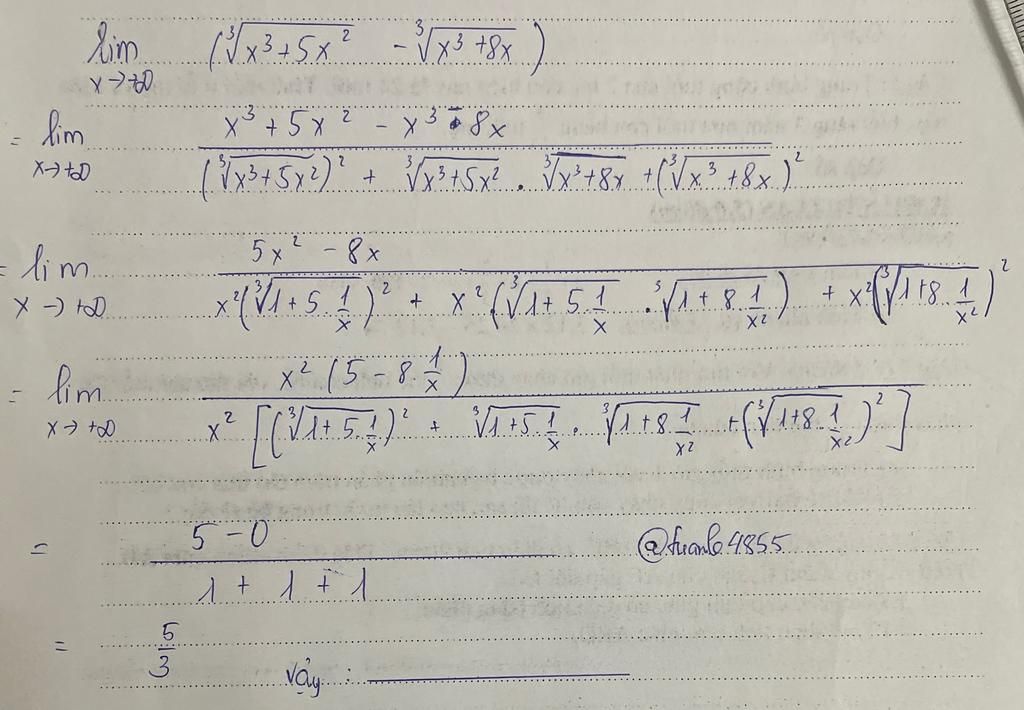 lim x→+∞ (∛(x³+5x²) - ∛(x³+8x))
= lim x→+∞ (x³ + 5x² - x³ - 8x) / ((∛(x³+5x²))² + ∛(x³+5x²) . ∛(x³+8x) + (∛(x³+8x))²)
= lim x→+∞ (5x² - 8x) / (x²(∛(1+5.1/x))² + x²(∛(1+5.1/x) . ∛(1+8.1/x²)) + x²(∛(1+8.1/x²))²)
= lim x→+∞ x²(5 - 8.1/x) / x²[(∛(1+5.1/x))² + ∛(1+5.1/x) . ∛(1+8.1/x²) + (∛(1+8.1/x²))²]
= (5 - 0) / (1 + 1 + 1)
= 5/3
Vậy :